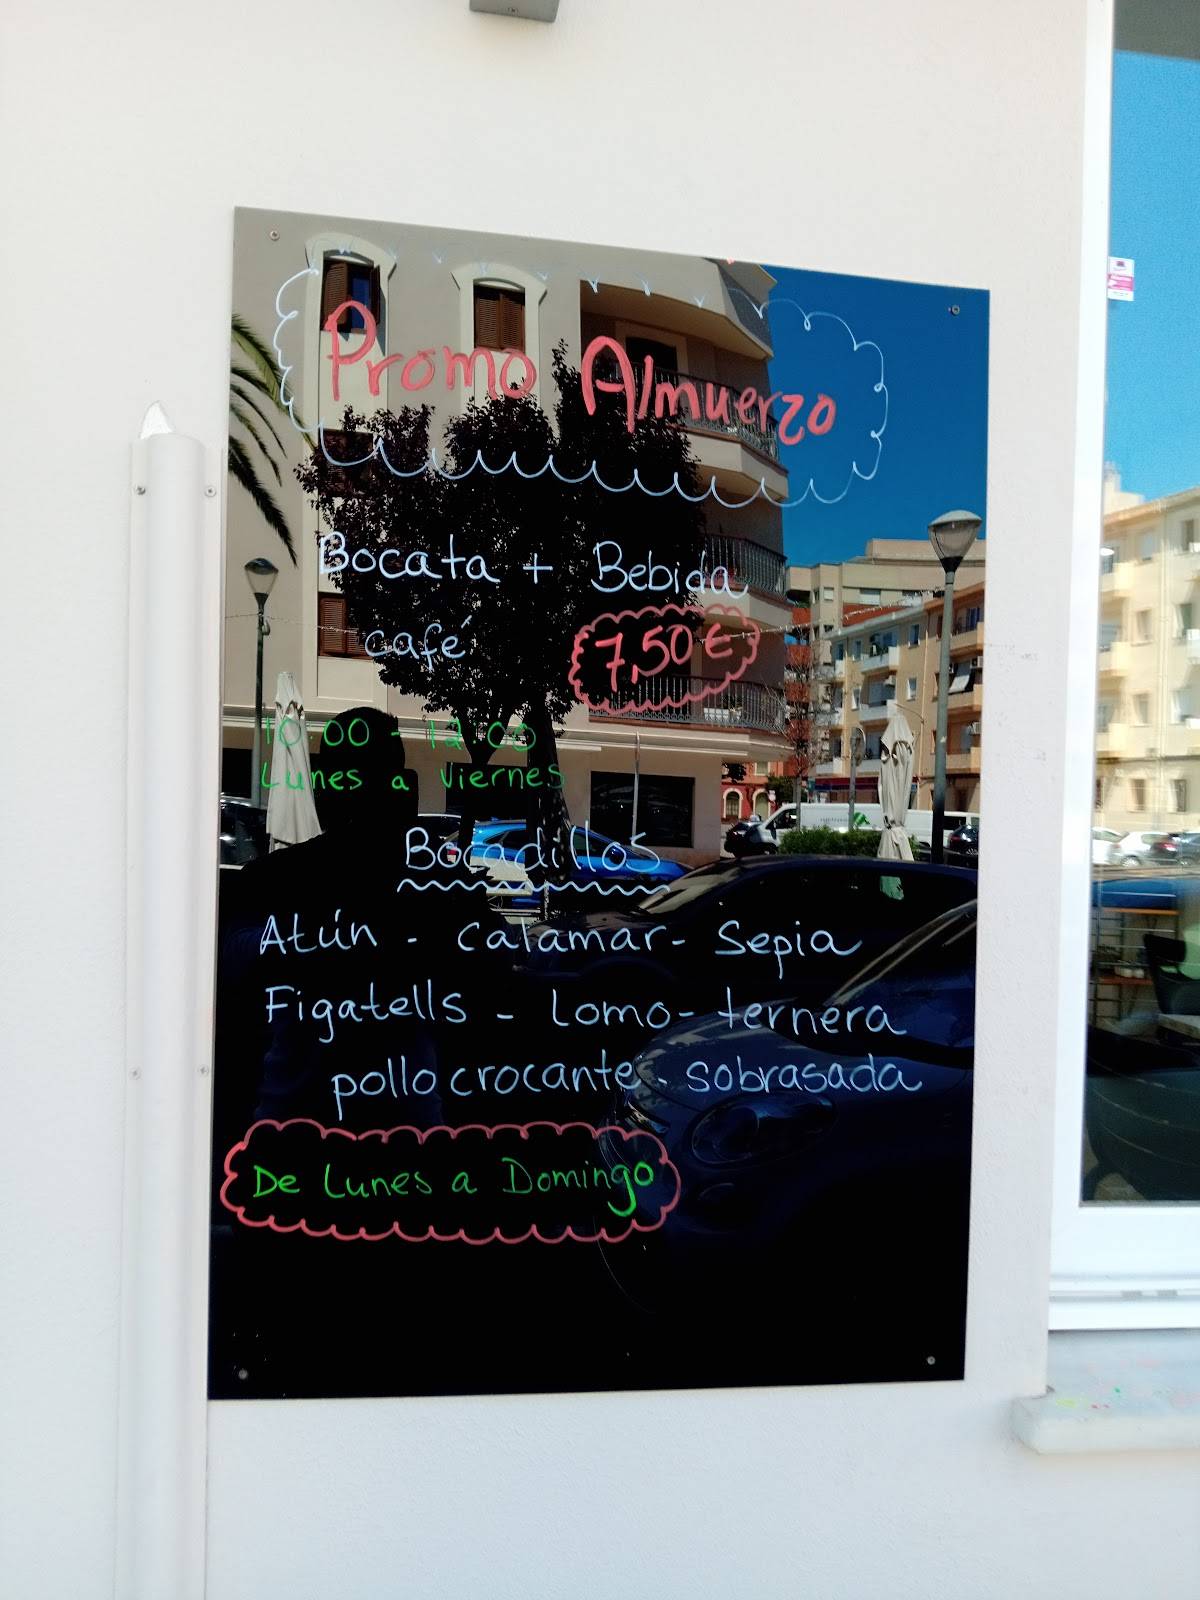 Promo Almuerzo
Bocata + Bebida
café 7,50 €
10:00 - 12:00
Lunes a Viernes
Bocadillos
Atún - calamar - Sepia
Figatells - Lomo - ternera
pollo crocante - sobrasada
De Lunes a Domingo